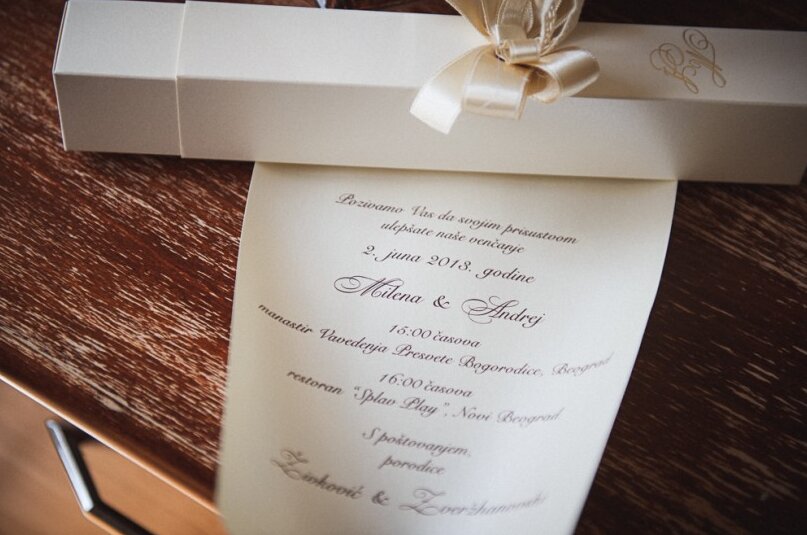 Pozivamo Vas da svojim prisustvom
ulepšate naše venčanje
2. juna 2013. godine
Milena & Andrej
15:00 časova
manastir Vavedenja Presvete Bogorodice, Beograd
16:00 časova
restoran "Splav Play", Novi Beograd
S poštovanjem,
porodice
Živković &